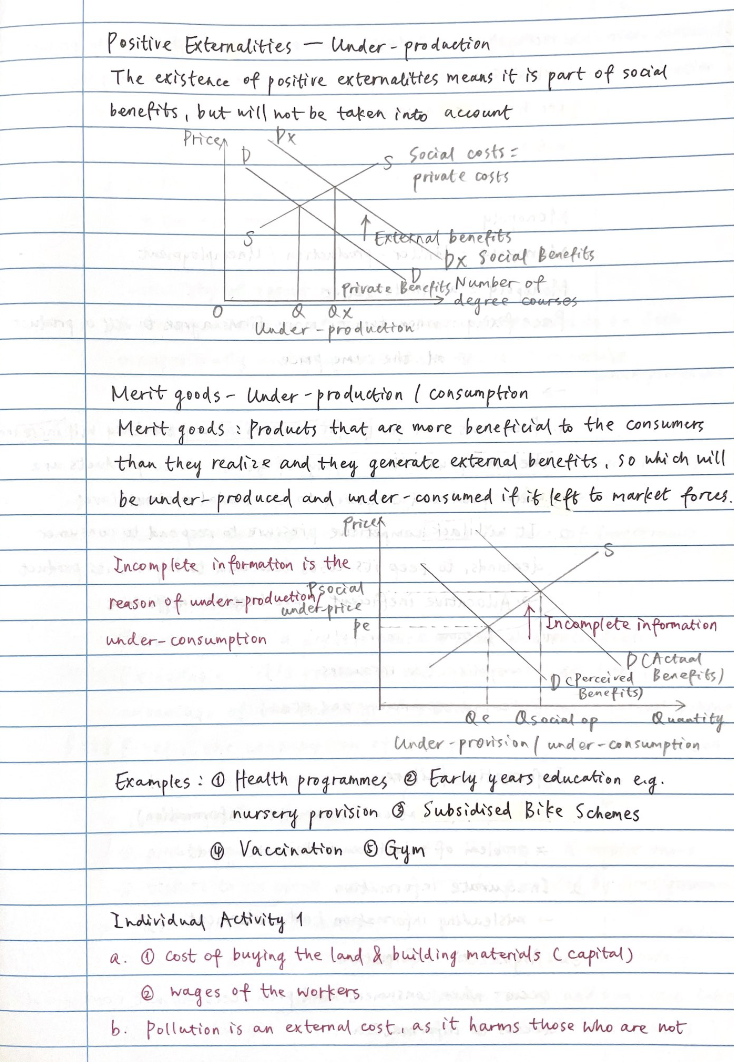 Positive Externalities — Under-production
The existence of positive externalities means it is part of social
benefits, but will not be taken into account
Price
D
Dx
S
Social costs =
private costs
S
External benefits
Dx Social Benefits
D
Private Benefits
Number of
degree courses
O
Q
Qx
Under-production
Merit goods - Under-production / consumption
Merit goods : Products that are more beneficial to the consumers
than they realize and they generate external benefits, so which will
be under-produced and under-consumed if it left to market forces.
Price
S
Incomplete information is the
reason of under-production/
under-consumption
Psocial
under-price
Pe
Incomplete information
D (Actual
Benefits)
D (Perceived
Benefits)
Qe
Qsocial op
Quantity
Under-provision / under-consumption
Examples : ① Health programmes ② Early years education e.g.
nursery provision ③ Subsidised Bike Schemes
④ Vaccination ⑤ Gym
Individual Activity 1
a. ① cost of buying the land & building materials (capital)
② wages of the workers
b. Pollution is an external cost, as it harms those who are not